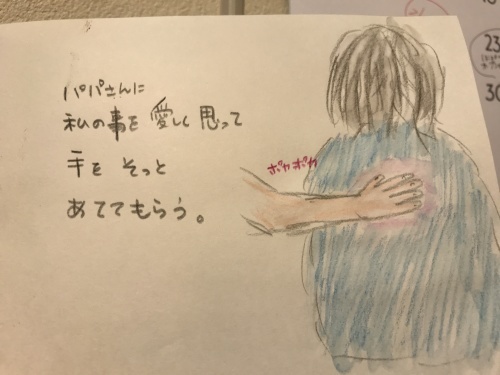 パパさんに
私の事を愛しく思って
手をそっと
あててもらう。
ポカポカ
23
30